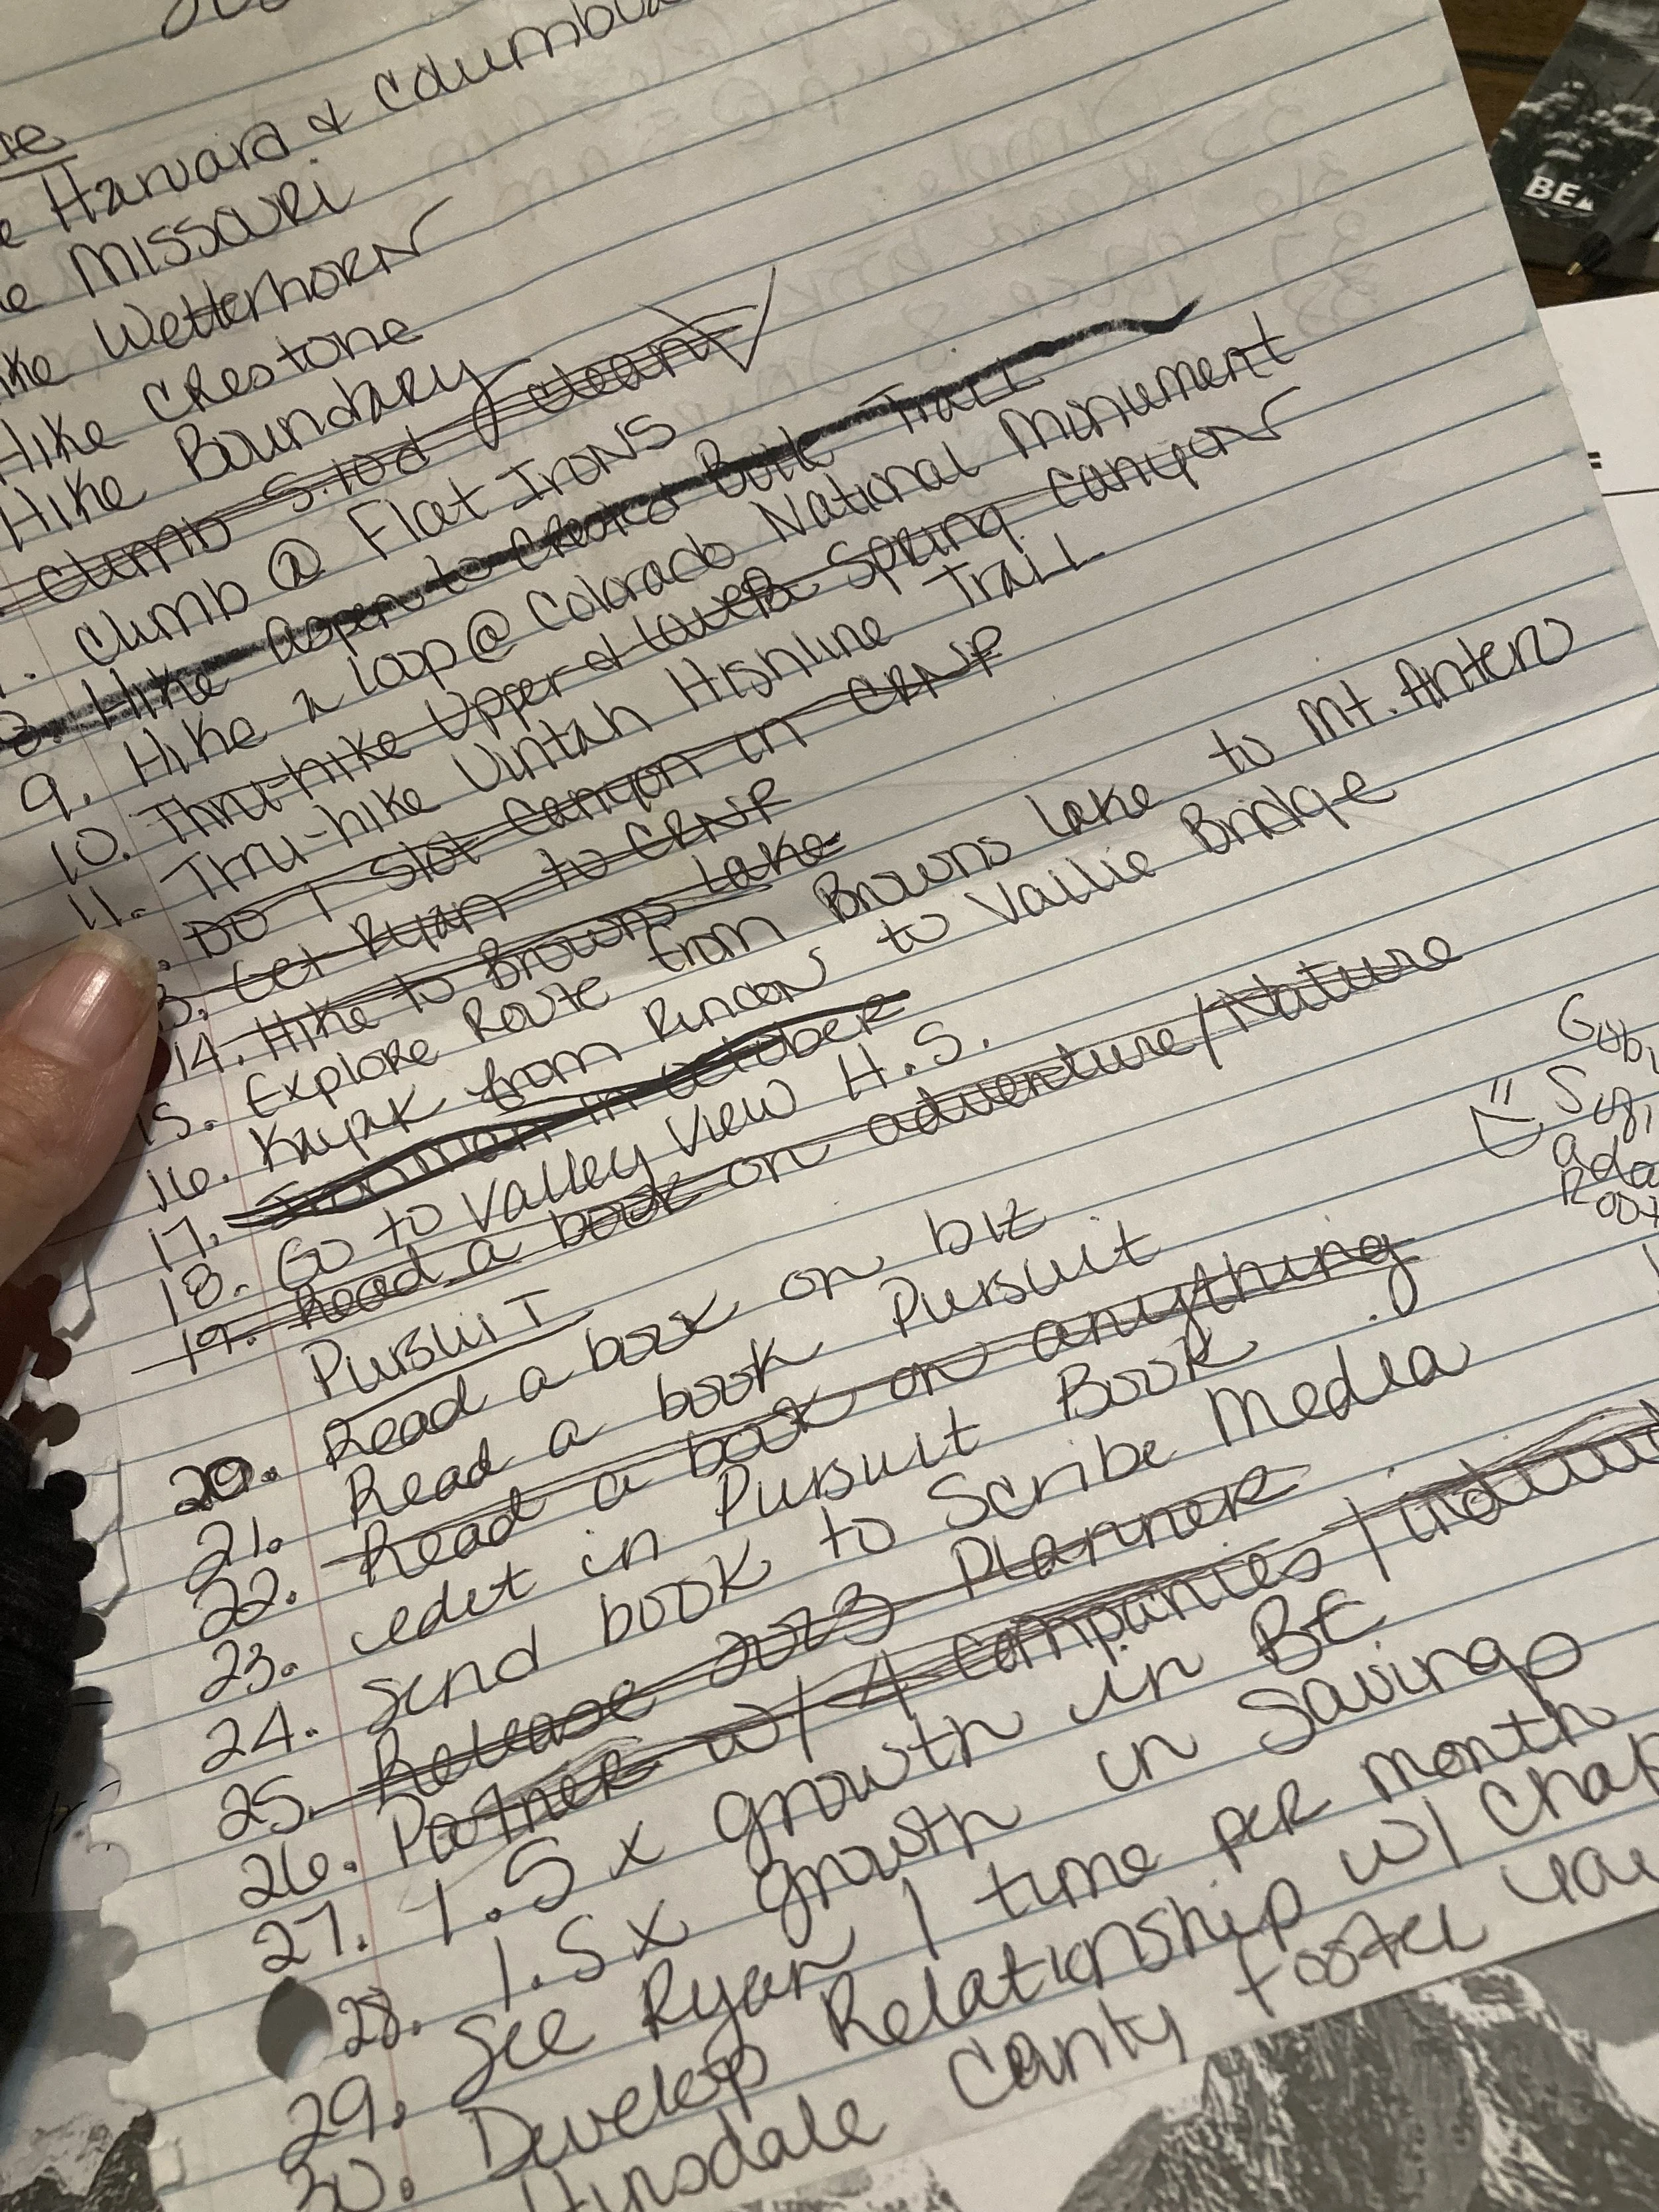 Harvard & Columbia
Missouri
Wetterhorn
Hike Crestone
Hike Boundary
Climb 5.10d clean
Climb @ Flat Irons
8. Hike Aspen to Crested Butte Trail
9. Hike a loop @ Colorado National Monument
10. Thru-hike Upper & Lower Spring Canyon
11. Thru-hike Uintah Highline Trail
. Do 1 slot canyon in CRNP
3. Get Ryan to CRNP
14. Hike to Browns Lake
15. Explore Route from Browns Lake to Mt. Antero
16. Kayak from Rincon to Vallie Bridge
17. Ironman in October
18. Go to Valley View H.S.
19. Read a book on adventure/Nature
Pursuit
20. Read a book on biz
21. Read a book Pursuit
22. Read a book on anything
23. edit in Pursuit Book
24. Send book to Scribe Media
25. Release 2023 Planner
26. Partner w/ 4 companies /
27. 1.5 x growth in BE
28. 1.5 x growth in Savings
29. See Ryan 1 time per month
30. Develop Relationship w/ Chaf
Hinsdale Canty Foster
BE